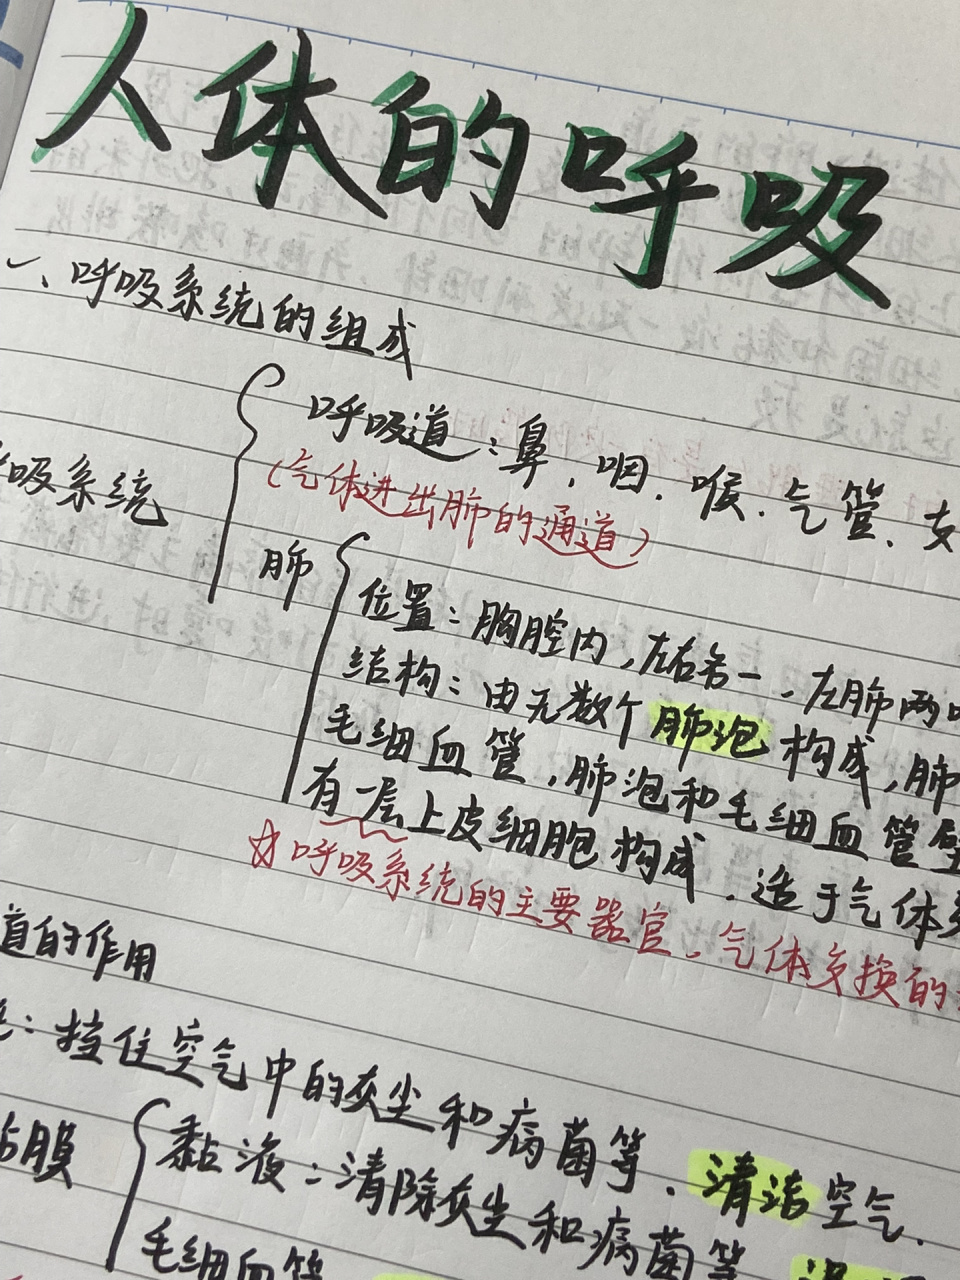 人体的呼吸
一、呼吸系统的组成
呼吸道：鼻、咽、喉、气管、支
(气体进出肺的通道)
吸系统
肺
位置：胸腔内，左右各一、左肺两
结构：由无数个肺泡构成，肺
毛细血管，肺泡和毛细血管壁
有一层上皮细胞构成．造于气体
呼吸系统的主要器官、气体交换的
道的作用
：挡住空气中的灰尘和病菌等．清洁空气．
膜
黏液：清除灰尘和病菌等
毛细血管